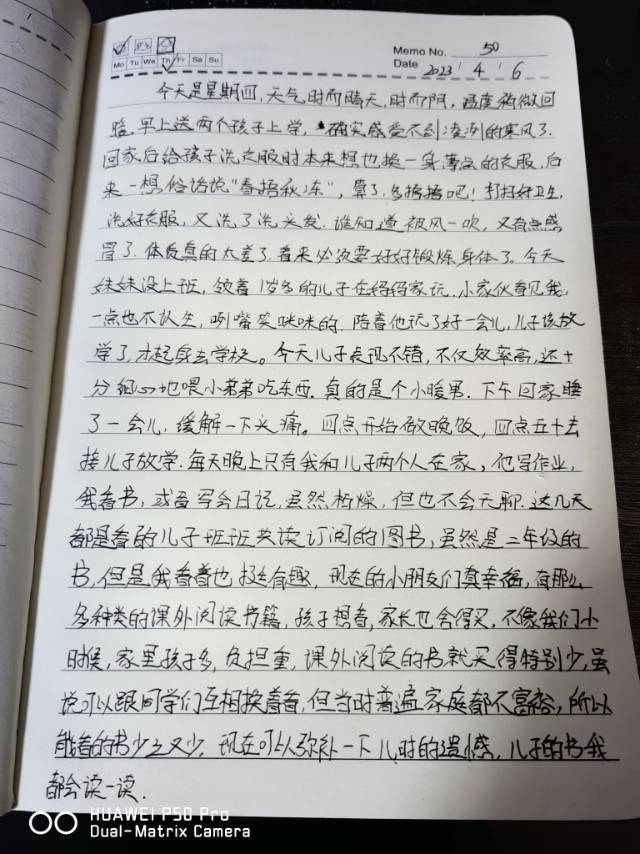 Mo Tu We Th Fr Sa Su
Memo No. 50
Date 2023 / 4 / 6
今天是星期四,天气时而晴天,时而阴,温度稍微回
暖。早上送两个孩子上学,确实感受不到凌冽的寒风了.
回家后给孩子洗衣服时本来想也换一身薄点的衣服,后
来一想俗话说"春捂秋冻",算了,多捂捂吧!打扫好卫生,
洗好衣服,又洗了洗头发.谁知道被风一吹,又有点感
冒了.体质真的太差了.看来必须要好好锻炼身体了.今天
妹妹没上班,领着1岁多的儿子在妈妈家玩.小家伙看见我,
一点也不认生,咧嘴笑眯眯的.陪着他玩了好一会儿,儿子该放
学了,才起身去学校。今天儿子表现不错,不仅效率高,还十
分细心地喂小弟弟吃东西.真的是个小暖男.下午回家睡
了一会儿,缓解一下头痛。四点开始做晚饭,四点五十去
接儿子放学.每天晚上只有我和儿子两个人在家,他写作业,
我看书,或者写会日记,虽然枯燥,但也不会无聊.这几天
都是看的儿子班班共读订阅的图书,虽然是二年级的
书,但是我看着也挺有趣,现在的小朋友们真幸福,有那么
多种类的课外阅读书籍,孩子想看,家长也舍得买.不像我们小
时候,家里孩子多,负担重,课外阅读的书就买得特别少,虽
说可以跟同学们互相换着看,但当时普遍家庭都不富裕,所以
能看的书少之又少.现在可以弥补一下儿时的遗憾,儿子的书我
都会读一读.
HUAWEI P50 Pro
Dual-Matrix Camera